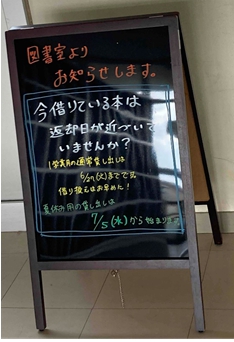 図書室より
お知らせします。
今借りている本は
返却日が近づいて
いませんか？
1学期の通常貸し出しは
6/27(火)までです。
借り換えはお早めに！
夏休み用の貸し出しは
7/5(水)から始まります